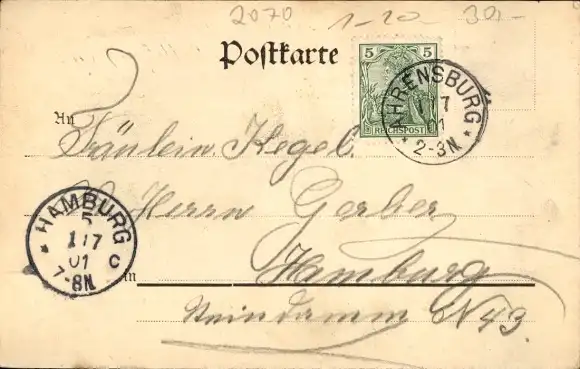 2070 1-20 30,-
Postkarte
5 5
REICHSPOST
AHRENSBURG
1/7
1
* 2-3N. *
An
Fräulein Kegel.
Herrn Gerber
* HAMBURG C
5
1/7
01
7-8N.
Hamburg
in
Steindamm N 43.